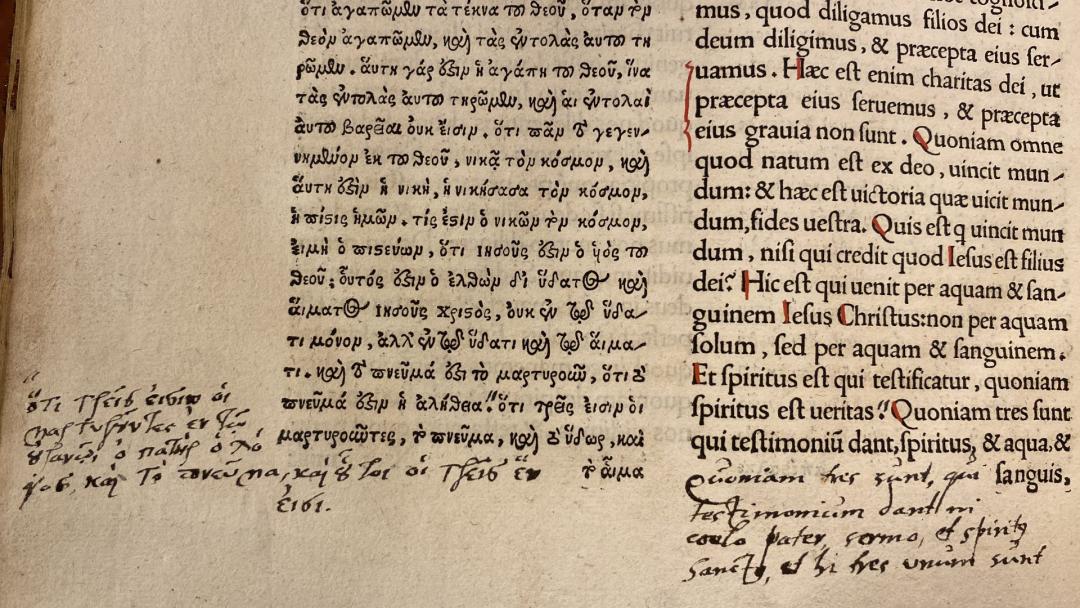 ὅτι ἀγαπῶμεν τὰ τέκνα τοῦ θεοῦ, ὅταν τὸν
θεὸν ἀγαπῶμεν, καὶ τὰς ἐντολὰς αὐτοῦ τη
ρῶμεν. ἅυτη γάρ ἐστιν ἡ ἀγάπη τοῦ θεοῦ, ἵνα
τὰς ἐντολὰς ἀυτοῦ τηρῶμεν, καὶ ἁι ἐντολαὶ
ἀυτοῦ βαρεῖαι ὀυκ ἔισιν. ὅτι πᾶν τὸ γεγεν-
νημένον ἐκ τοῦ θεοῦ, νικᾷ τὸν κόσμον, καὶ
ἅυτη ἐστὶν ἡ νικὴ, ἡ νικήσασα τὸν κόσμον,
ἡ πίστις ἡμῶν. τίς ἐστιν ὁ νικῶν τὸν κόσμον,
ἐιμὴ ὁ πιστεύων, ὅτι ἰησοῦς ἐστιν ὁ ὑὸς τοῦ
θεοῦ; οὗτός ἐστιν ὁ ἐλθὼν δι ὕδατος καὶ
ἅιματος ἰησοῦς χριστὸς, ὀυκ ἐν τῷ ὕδα-
τι μόνον, ἀλλ' ἐν τῷ ὕδατι καὶ τῷ ἅιμα-
τι. καὶ τὸ πνεῦμά ἐστι τὸ μαρτυροῦν, ὅτι τὸ
πνεῦμά ἐστιν ἡ ἀλήθεια." ὅτι τρεῖς ἐισιν ὁι
μαρτυροῦντες, τὸ πνεῦμα, καὶ τὸ ὕδωρ, καὶ
τὸ ἇιμα
ὅτι τρεῖς ἐισιν οἱ
μαρτυρῦντες ἐν τῷ
ὀυρανῷ ὁ πατὴρ ὁ λό
γος, καὶ τὸ πνεῦμα, καὶ οὗτοι οἱ τρεῖς ἓν
ἐισι.
mus, quod diligamus filios dei : cum
deum diligimus, & præcepta eius ser-
uamus. Hæc est enim charitas dei, ut
præcepta eius seruemus, & præcepta
eius grauia non sunt. Quoniam omne
quod natum est ex deo, uincit mun-
dum: & hæc est uictoria quæ uicit mun-
dum, fides uestra. Quis est q uincit mun
dum, nisi qui credit quod Iesus est filius
dei? Hic est qui uenit per aquam & san-
guinem Iesus Christus: non per aquam
solum, sed per aquam & sanguinem.
Et spiritus est qui testificatur, quoniam
spiritus est ueritas." Quoniam tres sunt
qui testimoniū dant, spiritus, & aqua, &
sanguis,
Quoniam tres sunt, qui
testimonium dant in
coelo pater, sermo, et spiritus
sanctus, et hi tres unum sunt